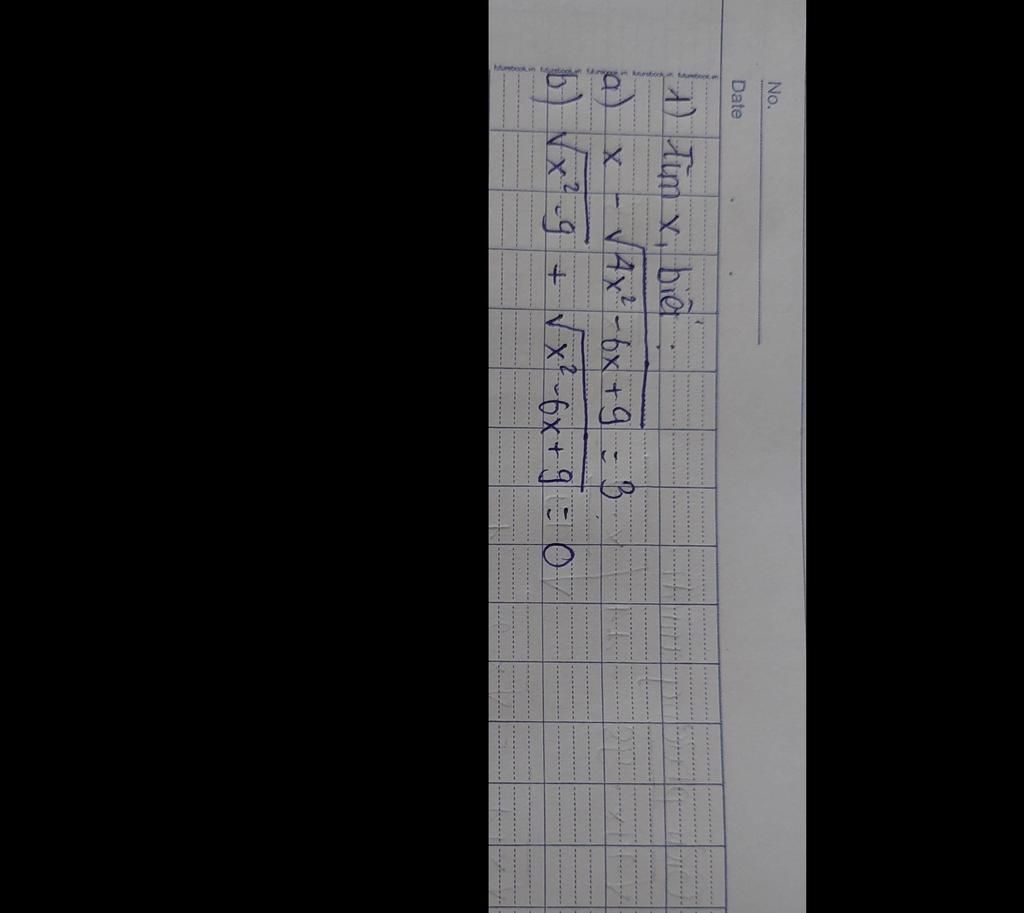 No.
Date
1) Tìm x, biế.
a) x - √4x² - 6x + 9 = 3
b) √x² - 9 + √x² - 6x + 9 = 0